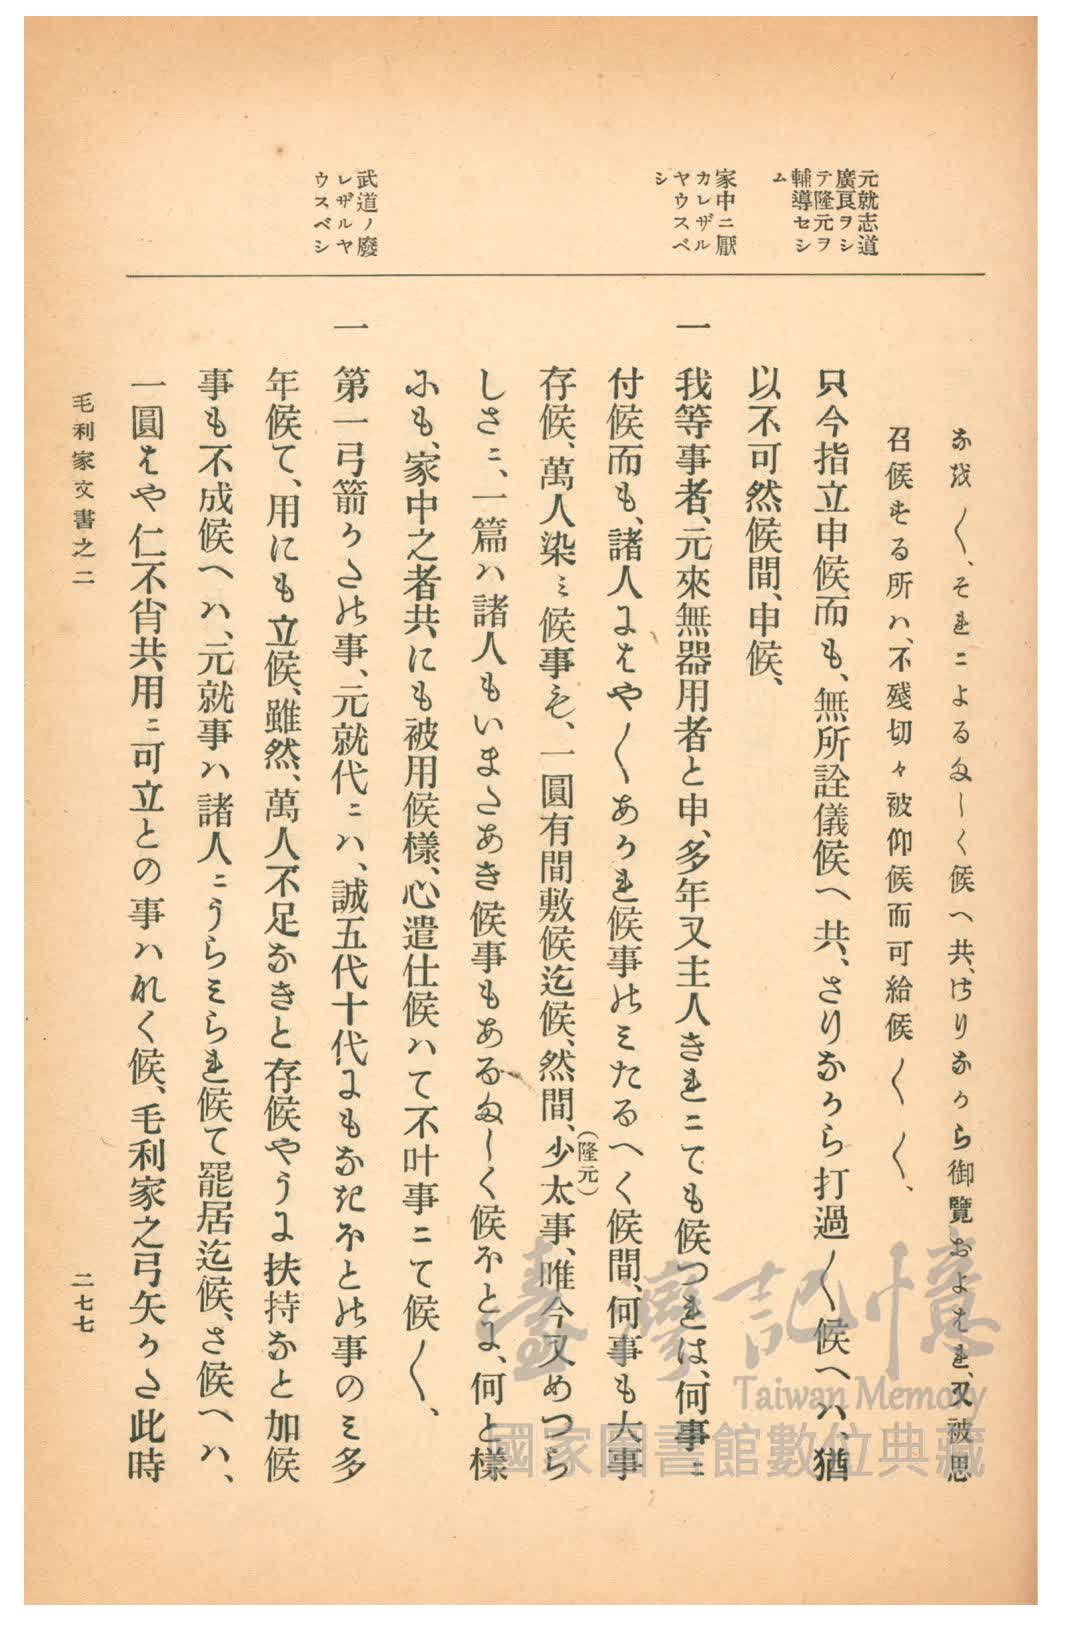 元就志道
廣良ヲシ
テ隆元ヲ
輔導セシ
ム
家中ニ厭
カレザル
ヤウスベ
シ
武道ノ廢
レザルヤ
ウスベシ
なほ〳〵、それニよるましく候へ共、けりなから御覽およはれ、又被思
召候する所ハ、不殘切々被仰候而可給候〳〵〳〵、
只今指立申候而も、無所詮儀候へ共、さりなから打過〳〵候へハ、猶
以不可然候間、申候、
一 我等事者、元來無器用者と申、多年又主人きれニても候つれは、何事ニ
付候而も、諸人にはや〳〵あかれ候事のミたるへく候間、何事も大事
存候、萬人染ミ候事も、一圓有間敷候迄候、然間、少太事、唯今又めつら
(隆元)
しさニ、一篇ハ諸人もいまたあき候事もあるましく候ほとに、何と樣
にも、家中之者共にも被用候樣、心遣仕候ハて不叶事ニて候〳〵、
一 第一弓箭かたの事、元就代ニハ、誠五代十代にもなきほとの事のミ多
年候て、用にも立候、雖然、萬人不足なきと存候やうに扶持なと加候
事も不成候へハ、元就事ハ諸人ニうらミられ候て罷居迄候、さ候へハ、
一圓はや仁不肖共用ニ可立との事ハれく候、毛利家之弓矢かた此時
毛利家文書之二
二七七
臺灣記憶
Taiwan Memory
國家圖書館數位典藏